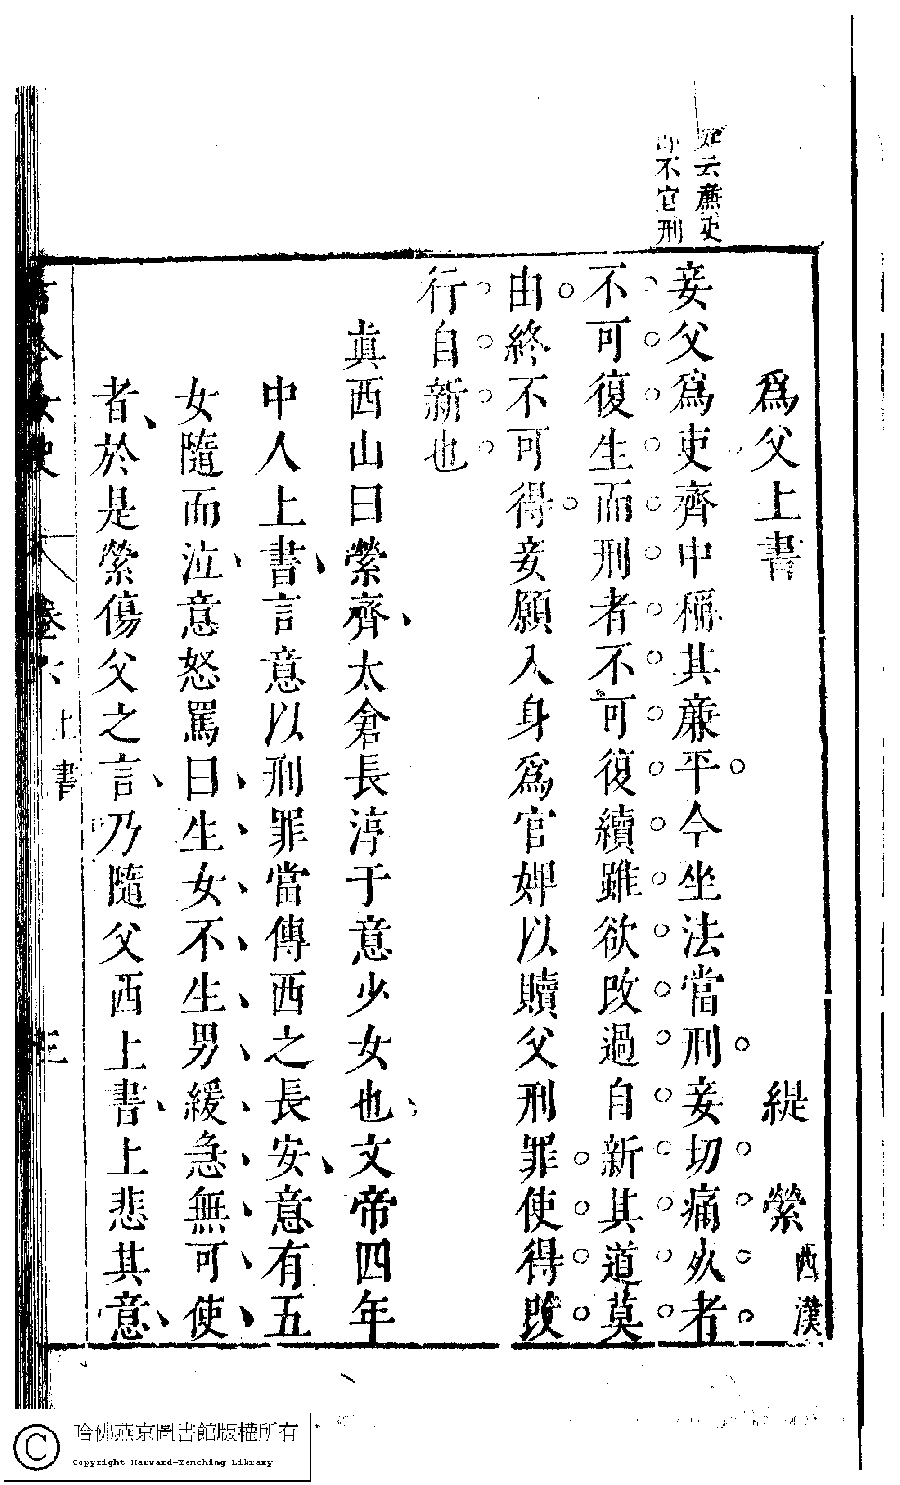 云蔗吏
不宜刑
爲父上書
緹縈西漢
妾父爲吏齊中稱其亷平今坐法當刑妾切痛死者
不可復生而刑者不可復續雖欲改過自新其道莫
由終不可得妾願入身爲官婢以贖父刑罪使得改
行自新也
眞西山曰縈齊太倉長淳于意少女也文帝四年
中人上書言意以刑罪當傳西之長安意有五
女隨而泣意怒罵曰生女不生男緩急無可使
者於是縈傷父之言乃隨父西上書上悲其意
卷六
上書
三
哈佛燕京圖書館版權所有
Copyright Harvard-Yenching Library